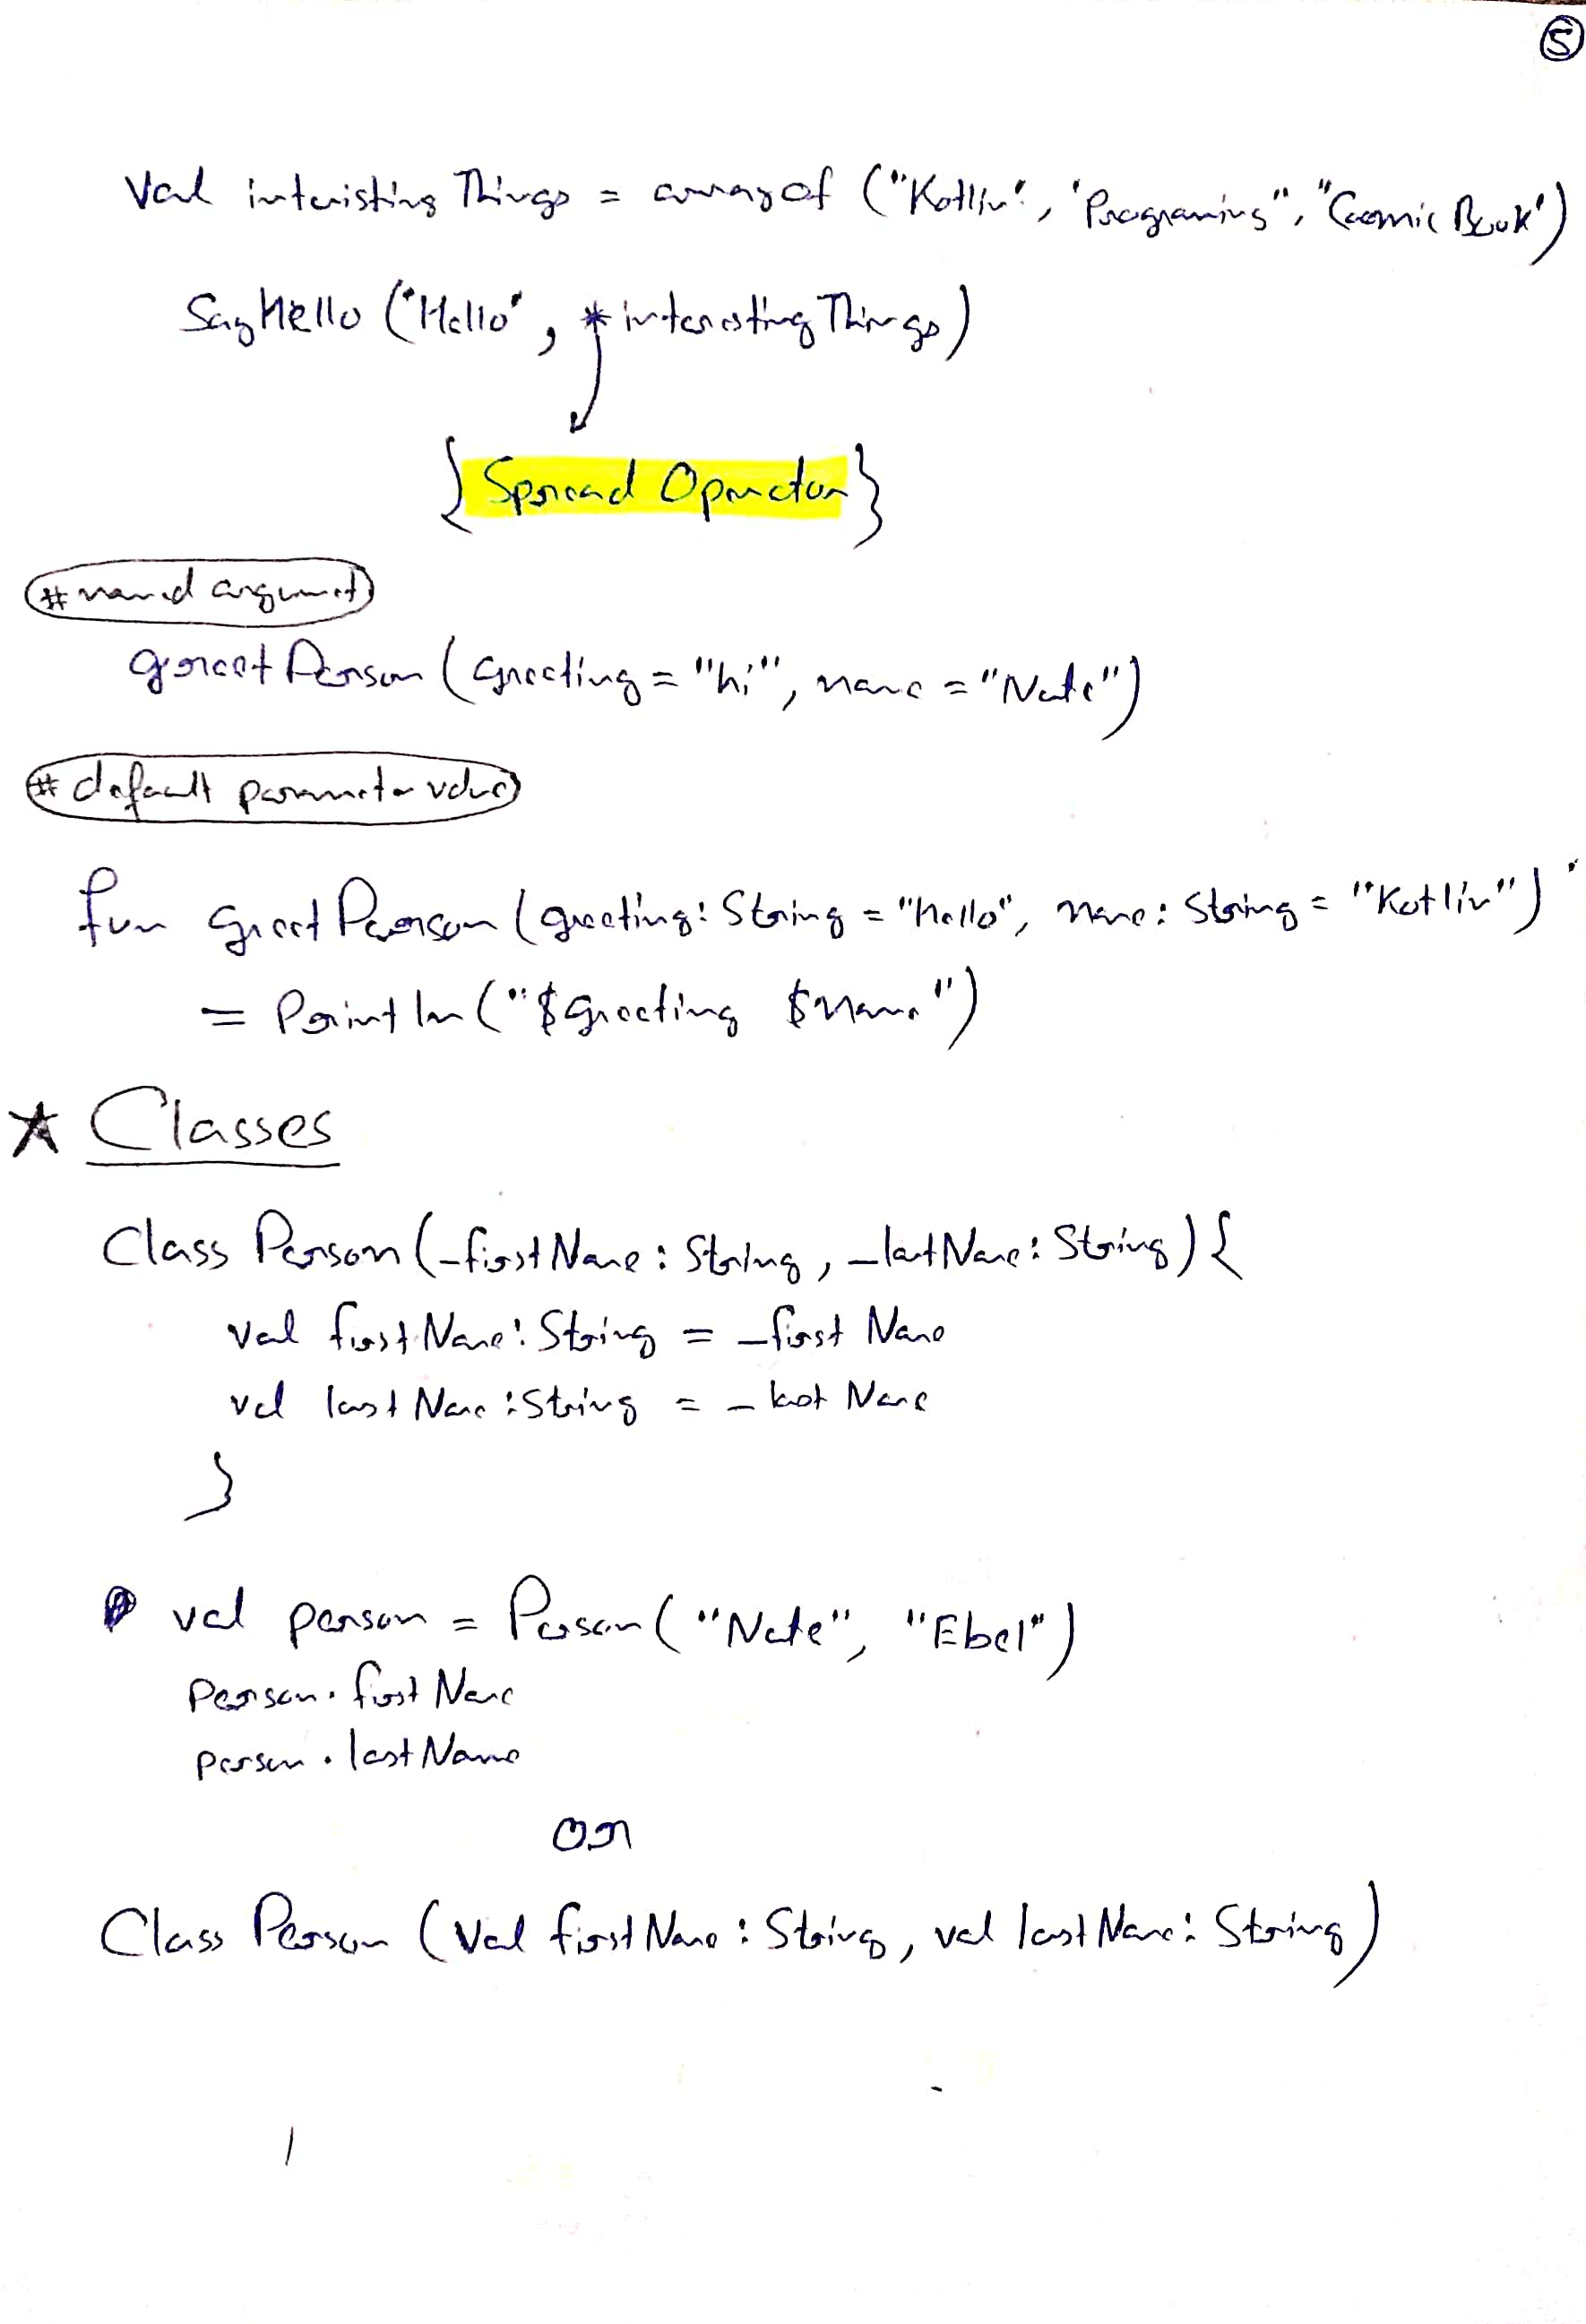 5
Val interisting Things = arrayof ("Kotlin", "Programing", "Coomic Book")
SayHello ("Hello", *interesting Things)
{Spread Operator}
# named argument
greet Person (Greeting = "hi", name = "Nate")
# default parameter value
fun Greet Person (greeting: String = "Hello", name: String = "Kotlin")
= Println ("$Greeting $name")
* Classes
Class Person (_first Name : String, _last Name : String) {
val first Name : String = _first Name
val last Name : String = _last Name
}
val person = Person ("Nate", "Ebel")
Person. first Name
person . last Name
or
Class Person (Val first Name : String, val last Name : String)